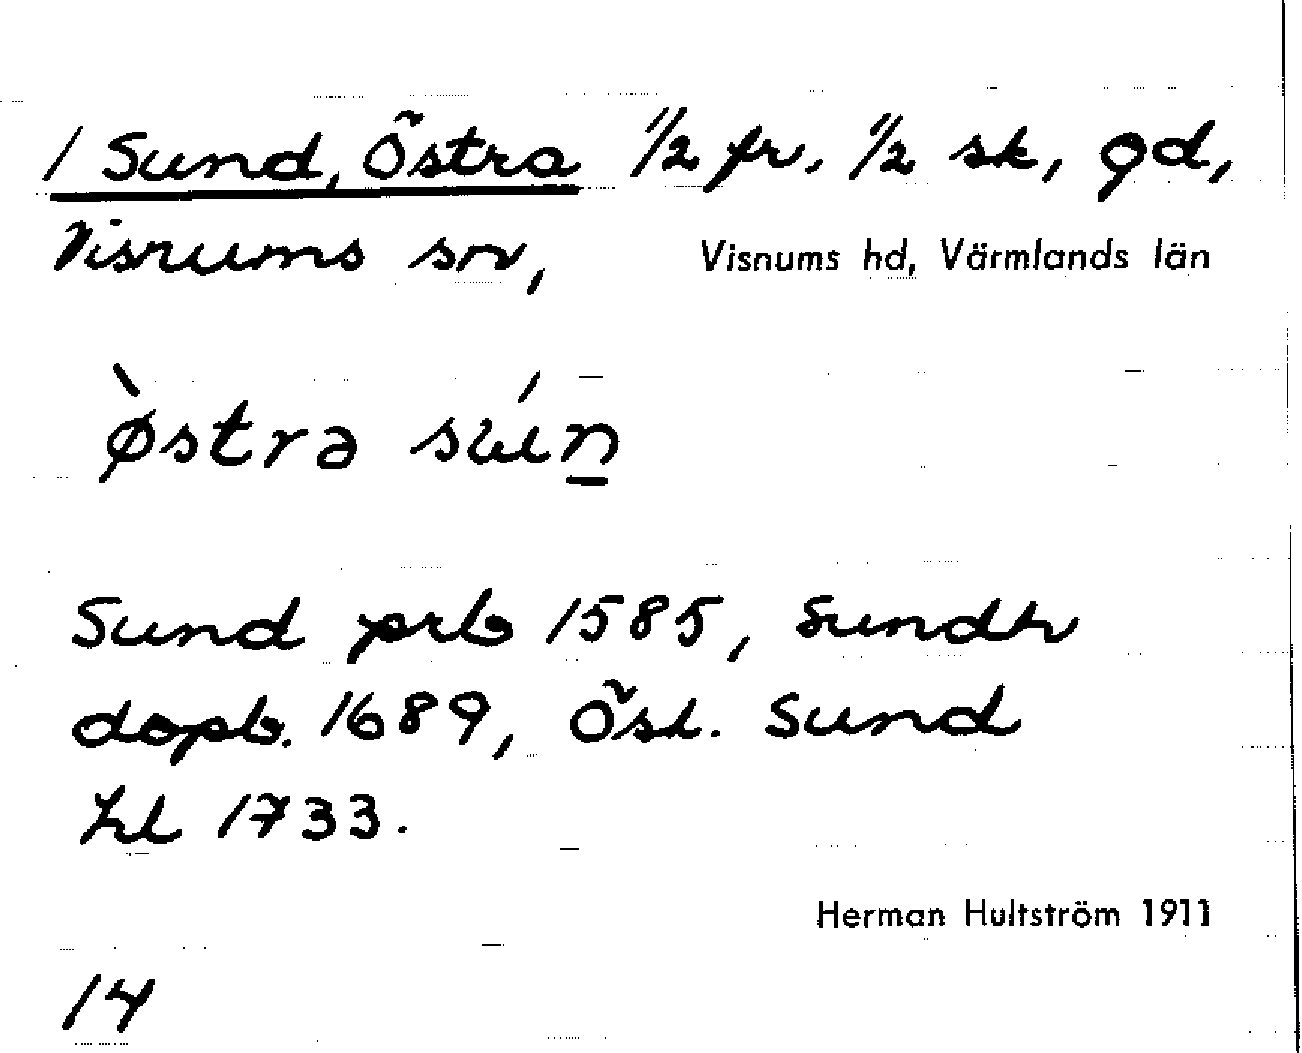 1 Sund, Östra 1/2 fr, 1/2 sk, gd,
Visnums sn, Visnums hd, Värmlands län
østra sun
Sund prb 1585, Sundh
dopb. 1689, Öst. Sund
hl 1733.
Herman Hultström 1911
14